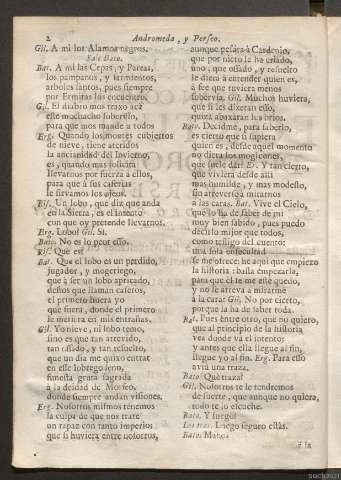 2 Andromeda, y Perseo.
Gil. A mi los Alamos negros.
Sale Bato.
Bat. A mi las Cepas, y Parras,
los pampanos, y sarmientos,
arboles santos, pues siempre
por Ermitas los encuentro.
Gil. El diabro mos traxo acá
este mochacho sobervio,
para que mos mande a todos
Erg. Quando los montes cubiertos
de nieve, tiene ateridos
la ancianidad del Invierno,
es, quando mas solicita
llevarnos por fuerza à ellos,
para que à sus
le sirvamos los
Ris. Un lobo, que diz que anda
en la Sierra, es el intento
con que oy pretende llevarnos.
Erg. Lobo? Gil. Si.
Bato. No es lo peor esso.
Ris. Què es?
Bat. Que el lobo es un perdido,
jugador, y mogeriego,
que à ser un lobo apricado,
destos que llaman caseros,
el primero huera yo
que huera, donde el primero
le metiera en mis entrañas.
Gil. Yo nieve, ni lobo temo,
sino es que tan atrevido,
tan ossado, y tan resuelto,
que un dia me quixo entrat
en esse lobrego seno,
funesta gruta sagrada
à la deidad de Morfeo,
donde siempre andan visiones.
Erg. Nosotros mismos tenemos
la culpa de que nos trate
un rapaz con tanto imperio
que si huviera entre nosotros,
aunque pesàra à Cardenio,
que por nieto le ha criado,
uno, que ossado, y resuelto
le diera à entender quien es,
à fee que tuviera menos
sobervia. Gil. Muchos huviera,
que si les dixeran esso,
quizà abaxàran los brios.
Bato. Decidme, para saberlo,
es cierto que si supiera
quien es, desde aquel momento
no diera los mogicones,
que suele dar? Er. Y tan cierto,
que viviera desde alli
mas humilde, y mas modesto,
sin atreverse à mirarnos
à las caras. Bat. Vive el Cielo,
que lo ha de saber de mi
muy bien sabido, pues puedo
decirlo mijor que todos,
como testigo del cuento:
una sola enfecultad
se me ofrece: he aqui que empiezo
la historia: basta empezarla,
para que èl se me estè quedo,
y no se atreva à mirarme
à la cara? Gil. No por cierto,
porque la ha de saber toda.
Bat. Pues entre otro, que no quiero,
que al principio de la historia
vea donde va el intento;
y antes que ella llegue al fin,
llegue yo al fin. Erg. Para esso
avià una traza.
Bato. Què traza?
Gil. Nosotros te le tendremos
de suerte, que aunque no quiera,
todo te lo escuche.
Bato. Y luego?
Los tres. Luego seguro estàs.
Bato. Manos
à la